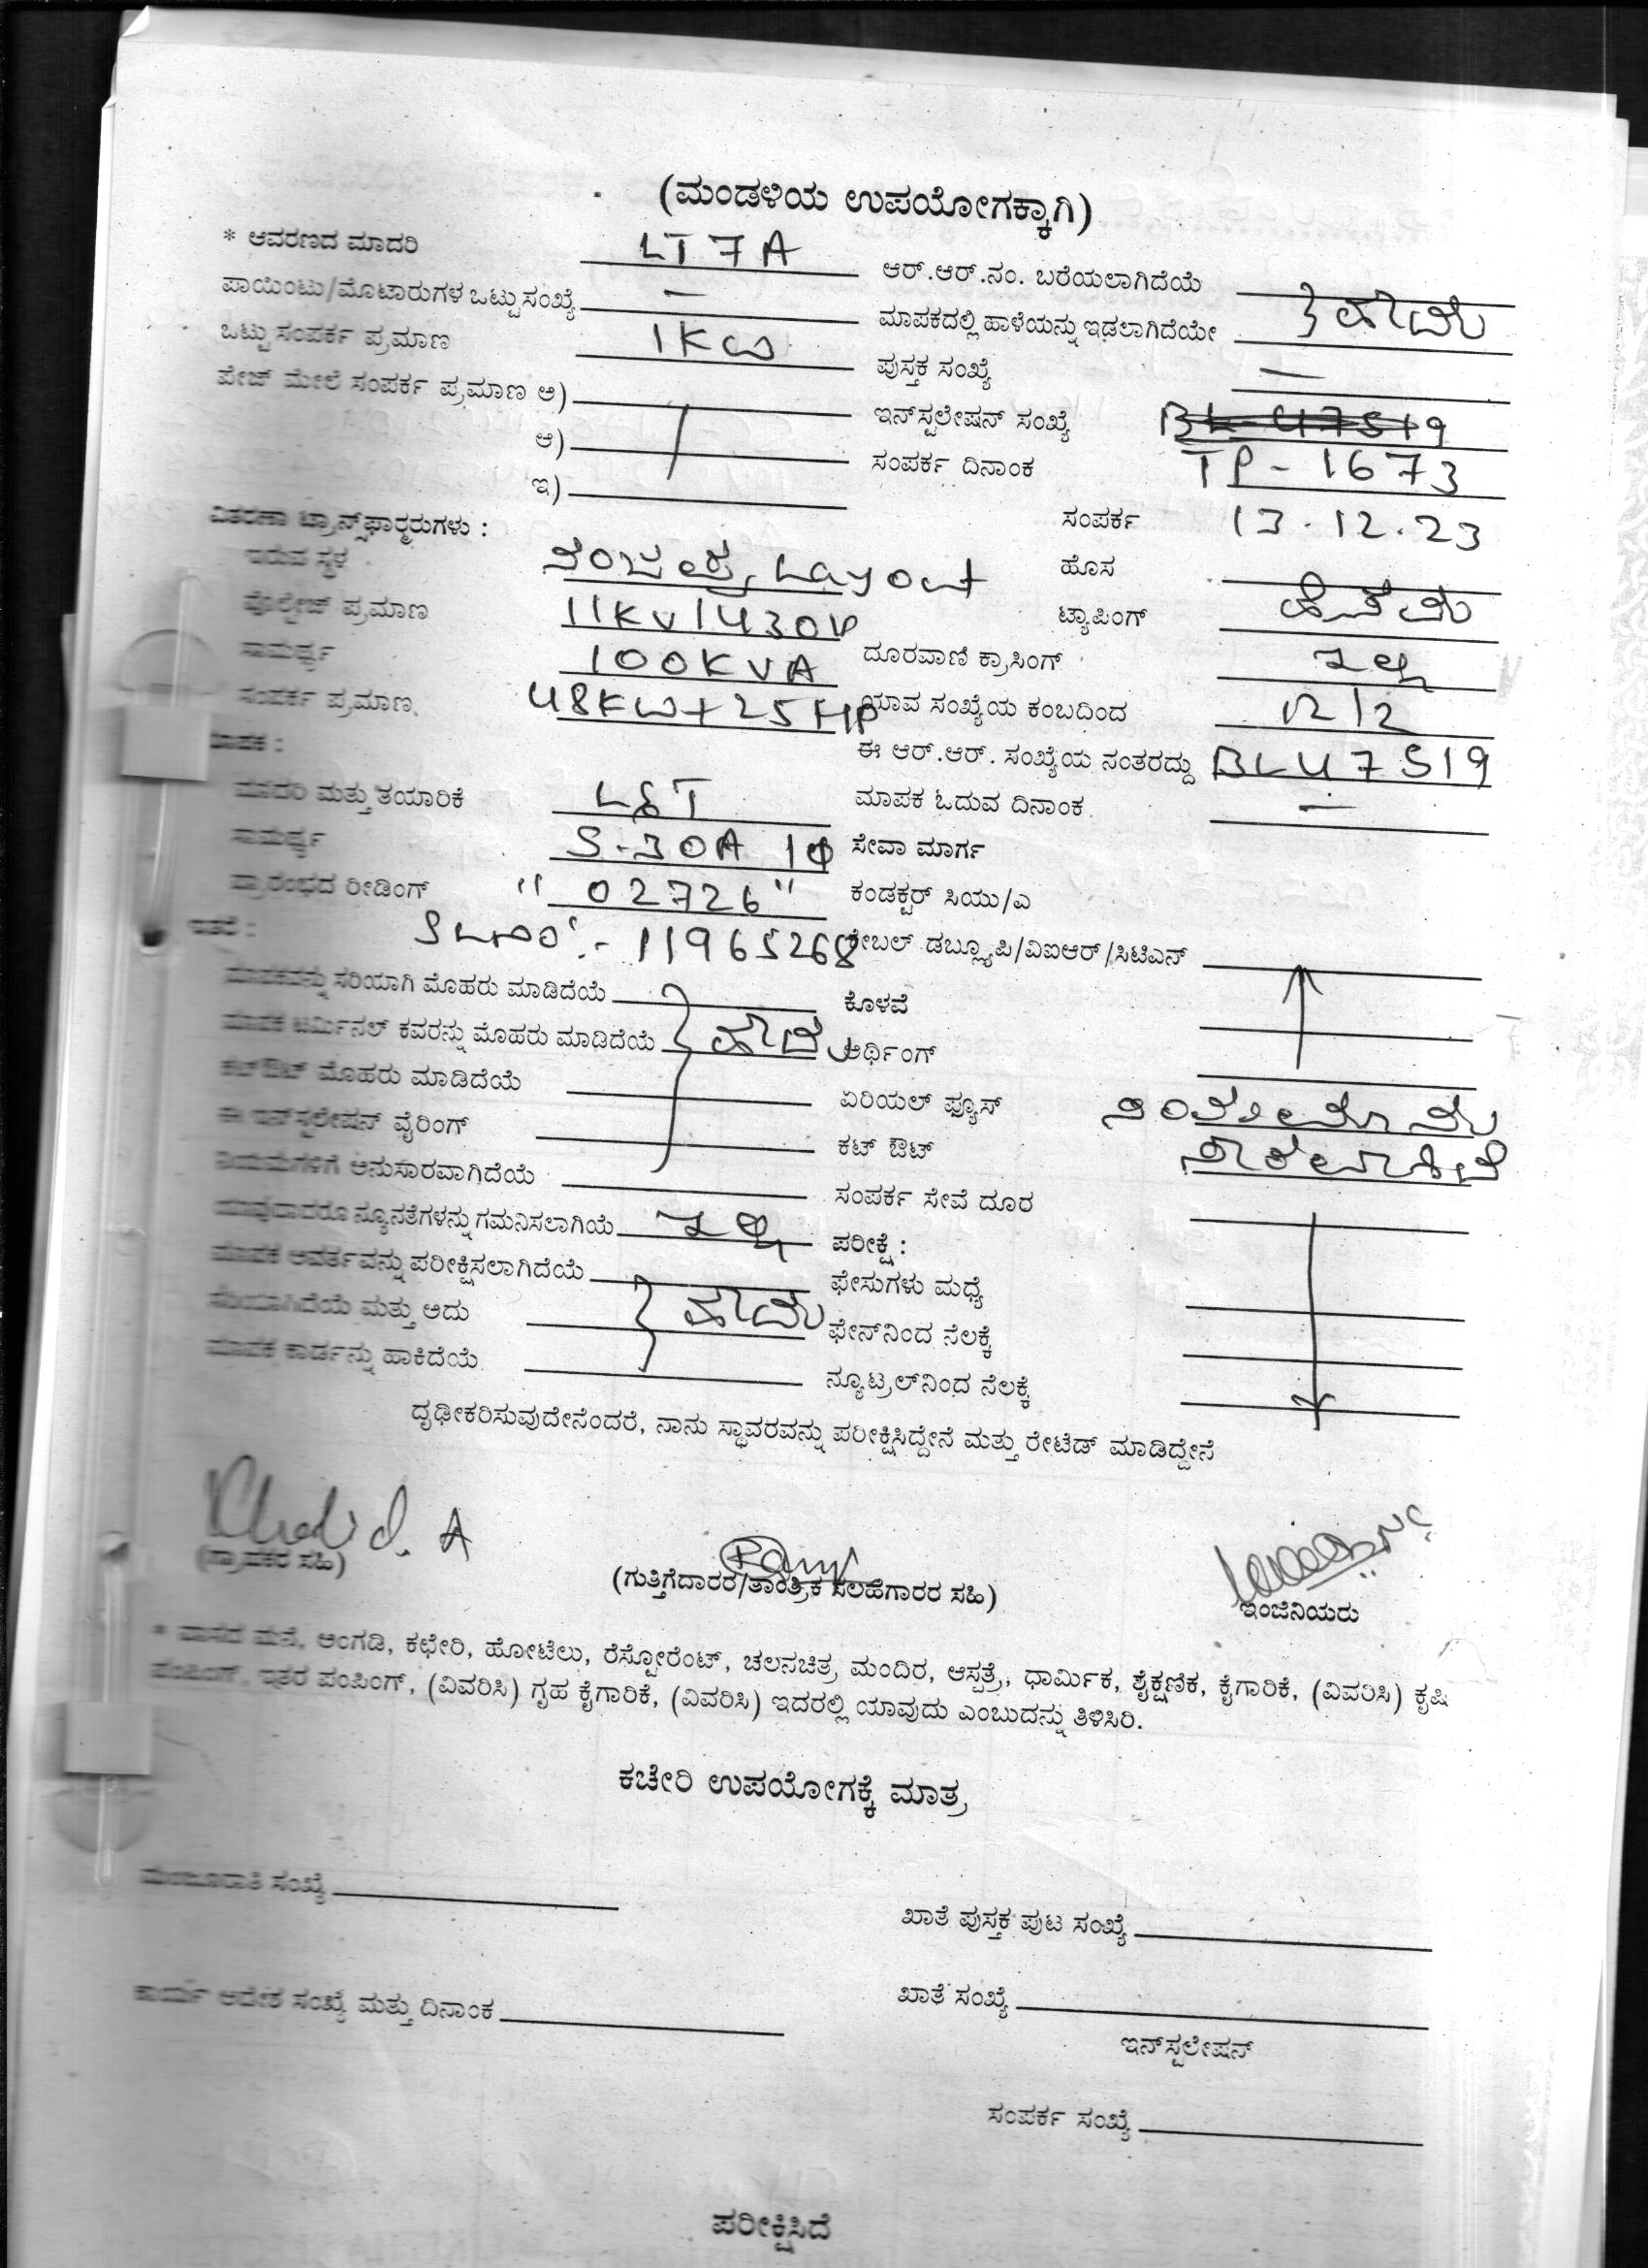 (ಮಂಡಳಿಯ ಉಪಯೋಗಕ್ಕಾಗಿ)
* ಆವರಣದ ಮಾದರಿ LT 7 A
ಆರ್.ಆರ್.ನಂ. ಬರೆಯಲಾಗಿದೆಯೆ
ಪಾಯಿಂಟು/ಮೊಟಾರುಗಳ ಒಟ್ಟು ಸಂಖ್ಯೆ —
ಮಾಪಕದಲ್ಲಿ ಹಾಳೆಯನ್ನು ಇಡಲಾಗಿದೆಯೇ } ಹೌದು
ಒಟ್ಟು ಸಂಪರ್ಕ ಪ್ರಮಾಣ 1KW
ಪುಸ್ತಕ ಸಂಖ್ಯೆ —
ಪೇಜ್ ಮೇಲೆ ಸಂಪರ್ಕ ಪ್ರಮಾಣ ಅ)
ಇನ್‌ಸ್ಟಲೇಷನ್ ಸಂಖ್ಯೆ BL-47519
ಆ)
ಸಂಪರ್ಕ ದಿನಾಂಕ TP-1673
ಇ)
ವಿತರಣಾ ಟ್ರಾನ್ಸ್‌ಫಾರ್ಮರುಗಳು :
ಸಂಪರ್ಕ 13.12.23
ಇರುವ ಸ್ಥಳ Layout
ಹೊಸ
ವೋಲ್ಟೇಜ್ ಪ್ರಮಾಣ 11KV/430V
ಟ್ಯಾಪಿಂಗ್
ಸಾಮರ್ಥ್ಯ 100KVA
ದೂರವಾಣಿ ಕ್ರಾಸಿಂಗ್ ಇಲ್ಲ
ಸಂಪರ್ಕ ಪ್ರಮಾಣ. 48KW+25HP
ಯಾವ ಸಂಖ್ಯೆಯ ಕಂಬದಿಂದ
ಮಾಪಕ :
ಈ ಆರ್.ಆರ್. ಸಂಖ್ಯೆಯ ನಂತರದ್ದು BL47519
ಮಾದರಿ ಮತ್ತು ತಯಾರಿಕೆ L&T
ಮಾಪಕ ಓದುವ ದಿನಾಂಕ —
ಸಾಮರ್ಥ್ಯ 5-30A 1φ
ಸೇವಾ ಮಾರ್ಗ
ಪ್ರಾರಂಭದ ರೀಡಿಂಗ್ "02726"
ಕಂಡಕ್ಟರ್ ಸಿಯು/ಎ
ಇತರೆ : SLNO:- 11965268
ಕೇಬಲ್ ಡಬ್ಲ್ಯೂಪಿ/ವಿಐಆರ್/ಸಿಟಿಎನ್
ಮಾಪಕವನ್ನು ಸರಿಯಾಗಿ ಮೊಹರು ಮಾಡಿದೆಯೆ
ಕೊಳವೆ
ಮಾಪಕ ಟರ್ಮಿನಲ್ ಕವರನ್ನು ಮೊಹರು ಮಾಡಿದೆಯೆ } ಹೌದು
ಅರ್ಥಿಂಗ್
ಕಟ್‌ಔಟ್ ಮೊಹರು ಮಾಡಿದೆಯೆ
ಏರಿಯಲ್ ಫ್ಯೂಸ್
ಈ ಇನ್‌ಸ್ಟಲೇಷನ್ ವೈರಿಂಗ್
ಕಟ್ ಔಟ್
ನಿಯಮಗಳಿಗೆ ಅನುಸಾರವಾಗಿದೆಯೆ
ಸಂಪರ್ಕ ಸೇವೆ ದೂರ
ಯಾವುದಾದರೂ ನ್ಯೂನತೆಗಳನ್ನು ಗಮನಿಸಲಾಗಿಯೆ ಇಲ್ಲ
ಪರೀಕ್ಷೆ :
ಮಾಪಕ ಆವರ್ತವನ್ನು ಪರೀಕ್ಷಿಸಲಾಗಿದೆಯೆ
ಫೇಸುಗಳು ಮಧ್ಯೆ
ಸರಿಯಾಗಿದೆಯೆ ಮತ್ತು ಅದು } ಹೌದು
ಫೇಸ್‌ನಿಂದ ನೆಲಕ್ಕೆ
ಮಾಪಕ ಕಾರ್ಡನ್ನು ಹಾಕಿದೆಯೆ
ನ್ಯೂಟ್ರಲ್‌ನಿಂದ ನೆಲಕ್ಕೆ
ದೃಢೀಕರಿಸುವುದೇನೆಂದರೆ, ನಾನು ಸ್ಥಾವರವನ್ನು ಪರೀಕ್ಷಿಸಿದ್ದೇನೆ ಮತ್ತು ರೇಟೆಡ್ ಮಾಡಿದ್ದೇನೆ
(ಗ್ರಾಹಕರ ಸಹಿ)
(ಗುತ್ತಿಗೆದಾರರ/ತಾಂತ್ರಿಕ ಸಲಹೆಗಾರರ ಸಹಿ)
ಇಂಜಿನಿಯರು
* ವಾಸದ ಮನೆ, ಅಂಗಡಿ, ಕಛೇರಿ, ಹೋಟೆಲು, ರೆಸ್ಟೋರೆಂಟ್, ಚಲನಚಿತ್ರ ಮಂದಿರ, ಆಸ್ಪತ್ರೆ, ಧಾರ್ಮಿಕ, ಶೈಕ್ಷಣಿಕ, ಕೈಗಾರಿಕೆ, (ವಿವರಿಸಿ) ಕೃಷಿ
ಪಂಪಿಂಗ್, ಇತರ ಪಂಪಿಂಗ್, (ವಿವರಿಸಿ) ಗೃಹ ಕೈಗಾರಿಕೆ, (ವಿವರಿಸಿ) ಇದರಲ್ಲಿ ಯಾವುದು ಎಂಬುದನ್ನು ತಿಳಿಸಿರಿ.
ಕಚೇರಿ ಉಪಯೋಗಕ್ಕೆ ಮಾತ್ರ
ಮಂಜೂರಾತಿ ಸಂಖ್ಯೆ
ಖಾತೆ ಪುಸ್ತಕ ಪುಟ ಸಂಖ್ಯೆ
ಕಾರ್ಯ ಆದೇಶ ಸಂಖ್ಯೆ ಮತ್ತು ದಿನಾಂಕ
ಖಾತೆ ಸಂಖ್ಯೆ
ಇನ್‌ಸ್ಟಲೇಷನ್
ಸಂಪರ್ಕ ಸಂಖ್ಯೆ
ಪರೀಕ್ಷಿಸಿದೆ